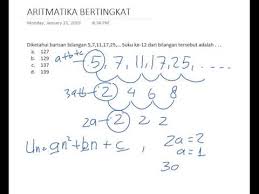 ARITMATIKA BERTINGKAT
Monday, January 21, 2019 8:36 PM
Diketahui barisan bilangan 5,7,11,17,25,... Suku ke-12 dari bilangan tersebut adalah . . .
a. 127
b. 129
c. 137
d. 139
a+b+c
5, 7, 11, 17, 25,...
3a+b 2 4 6 8
2a 2 2 2
Un = an² + bn + c, 2a = 2
a = 1
3a